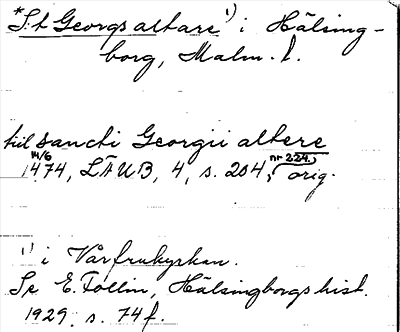 *S:t Georgs altare 1) i Hälsing-
borg, Malm. l.
till sancti Georgii altere
14/6 1474, LÄUB, 4, s. 204, nr 224, orig.
1) i Vårfrukyrkan.
Se E. Follin, Hälsingborgs hist.
1929 s. 74f.